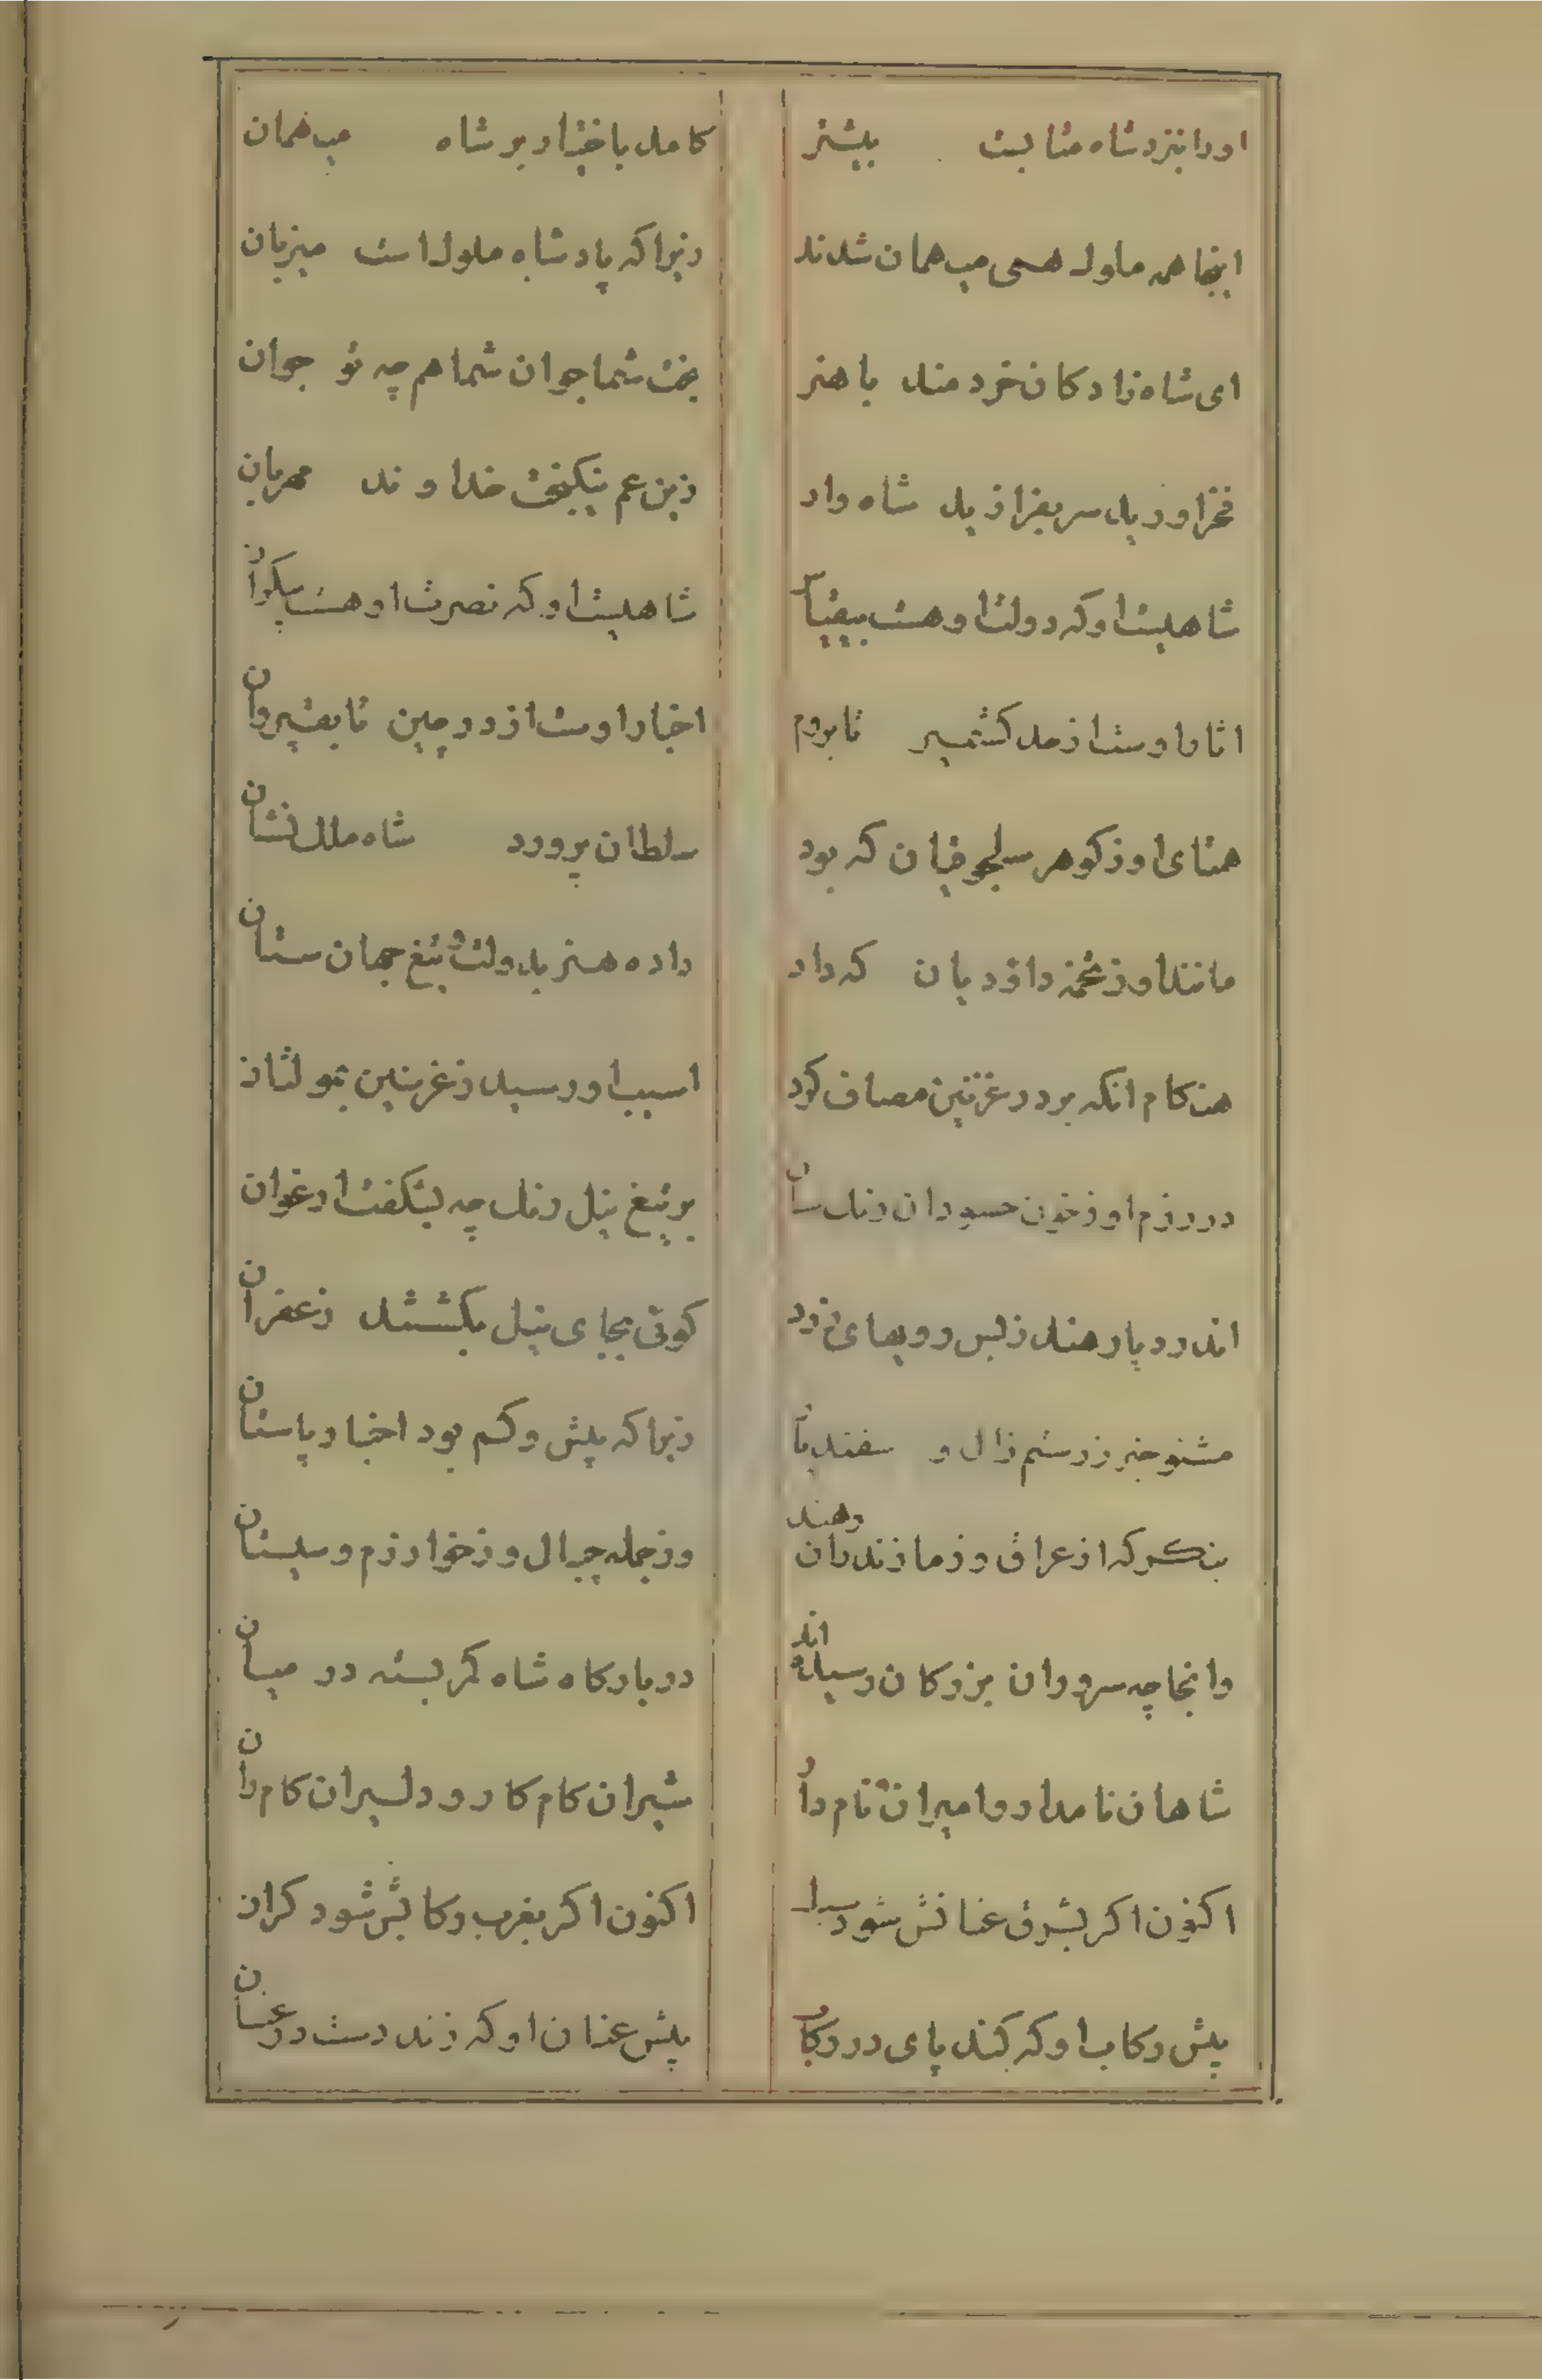 اورا بنزد شاه مثالیت بیشتر
کامد باختیار بر شاه میهمان
اینجا همه ملوک همی میهمان شدند
زیرا که پادشاه ملوک است میزبان
ای شاه زادکان خردمند با هنر
بخت شما جوان شما هم چه تو جوان
فخر اورید سر بفرازید شاه وار
زین عم نیکبخت خداوند مهربان
شاهیست او که دولت او هست بیقیاس
شاهیست او که نصرت او هست بیکران
اثار اوست از حد کشمیر تا بروم
اخبار اوست از در چین تا بقیروان
همتای او ز کوهر سلجوقیان که بود
سلطان پرورد شاه ملک نشان
مانند او ز تخمه داودیان که داد
داده هنر بدولت و تیغ جهان ستان
هنکام انکه بر در غزنین مصاف کرد
اسیب او رسید ز غزنین بمولتان
در رزم او ز خون حسودان رنک سان
بر تیغ نیل رنک چه بشکفت ارغوان
اندر دیار هند ز بس رویهای زرد
کوئی بجای نیل بکشتند زعفران
مشنو خبر ز رستم زال و سفندیار
زیرا که بیش و کم بود اخبار باستان
بنکر که از عراق و ز مازندران و هند
وز جمله جبال و ز خوارزم و سیستان
وانجا چه سروران بزرکان رسیده اند
در بارکاه شاه کمر بسته در میان
شاهان نامدار و امیران نام دار
شیران کام کار و دلیران کام ران
اکنون اکر بشرق عنانش شود سبک
اکنون اکر بغرب رکابش شود کران
پیش رکاب او که کند پای در رکاب
پیش عنان او که زند دست در عنان